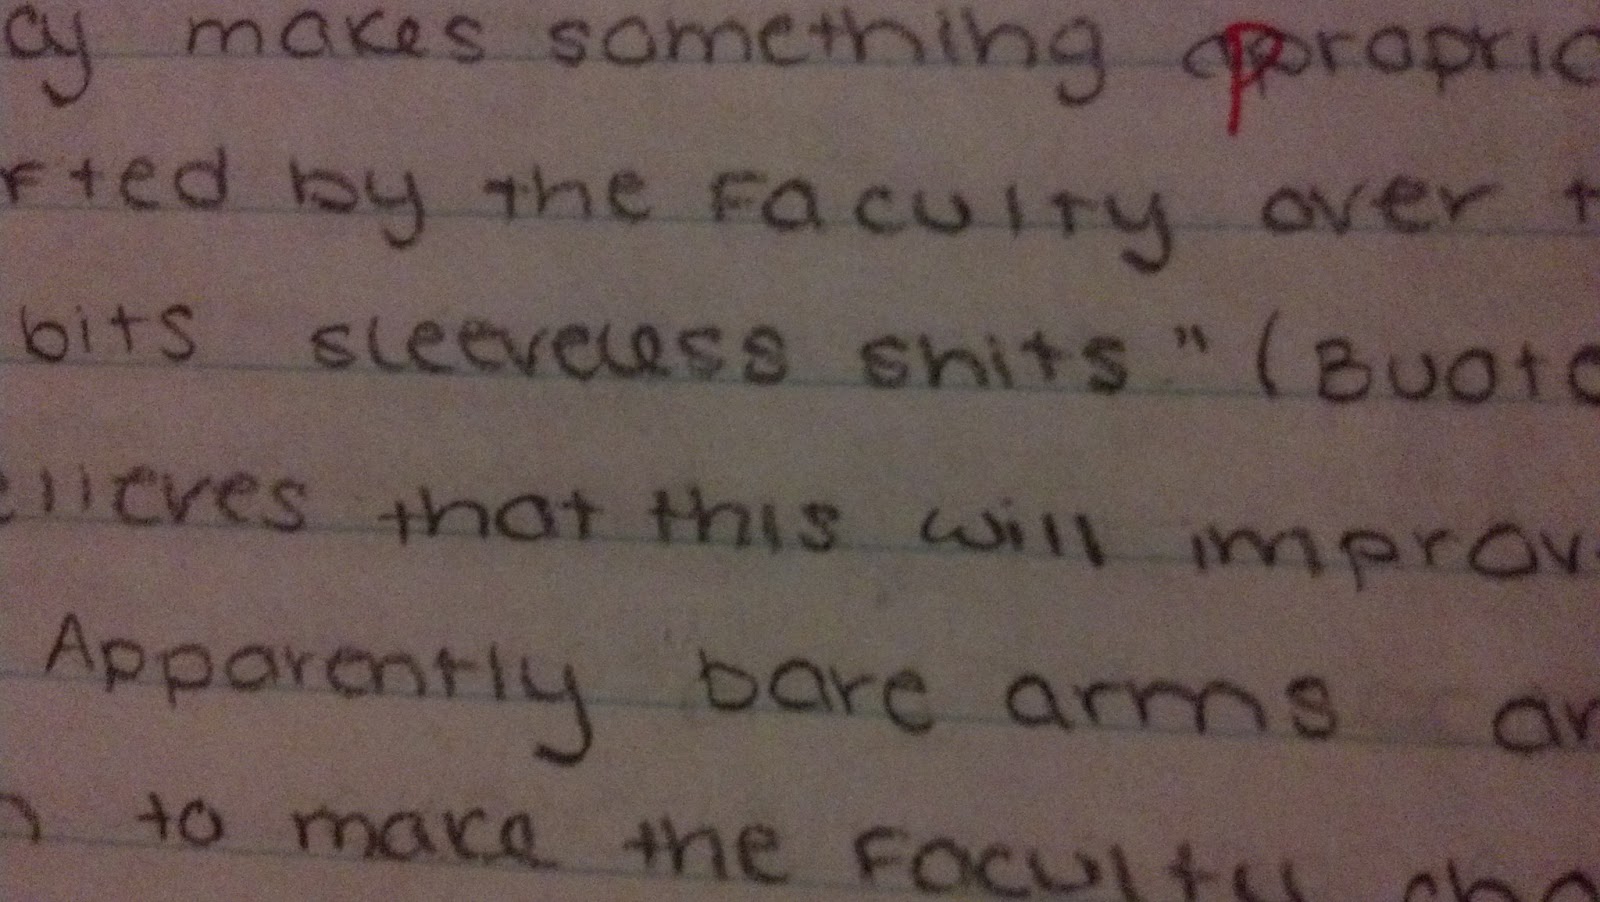 cy makes something appropria
fted by the Faculty over t
bits sleeveless shits" (Buote
elieves that this will improv
Apparently bare arms ar
to make the Faculty cha